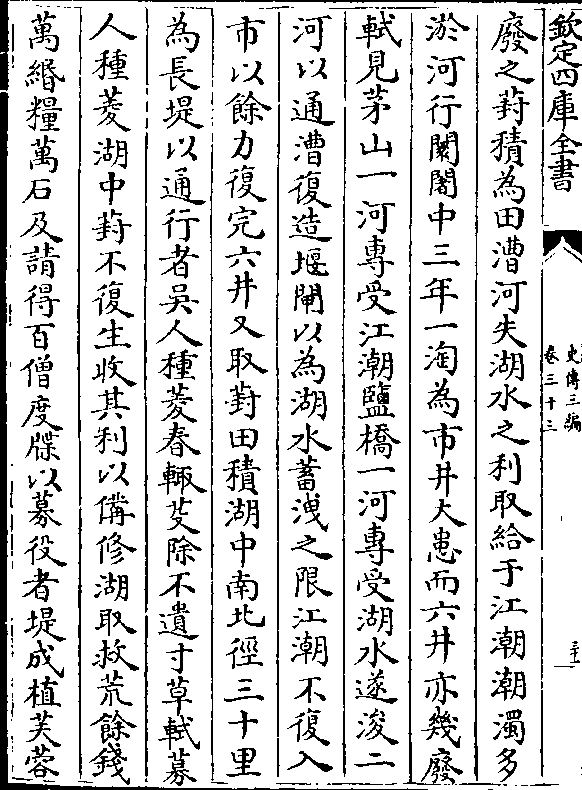 欽定四庫全書
史傳三編
卷三十三
廢之葑積為田漕河失湖水之利取給于江潮潮濁多
淤河行闤闠中三年一淘為市井大患而六井亦幾廢
軾見茅山一河專受江潮鹽橋一河專受湖水遂浚二
河以通漕復造堰閘以為湖水蓄洩之限江潮不復入
市以餘力復完六井又取葑田積湖中南北徑三十里
為長堤以通行者吳人種菱春輒芟除不遺寸草軾募
人種菱湖中葑不復生收其利以備修湖取救荒餘錢
萬緡糧萬石及請得百僧度牒以募役者堤成植芙蓉